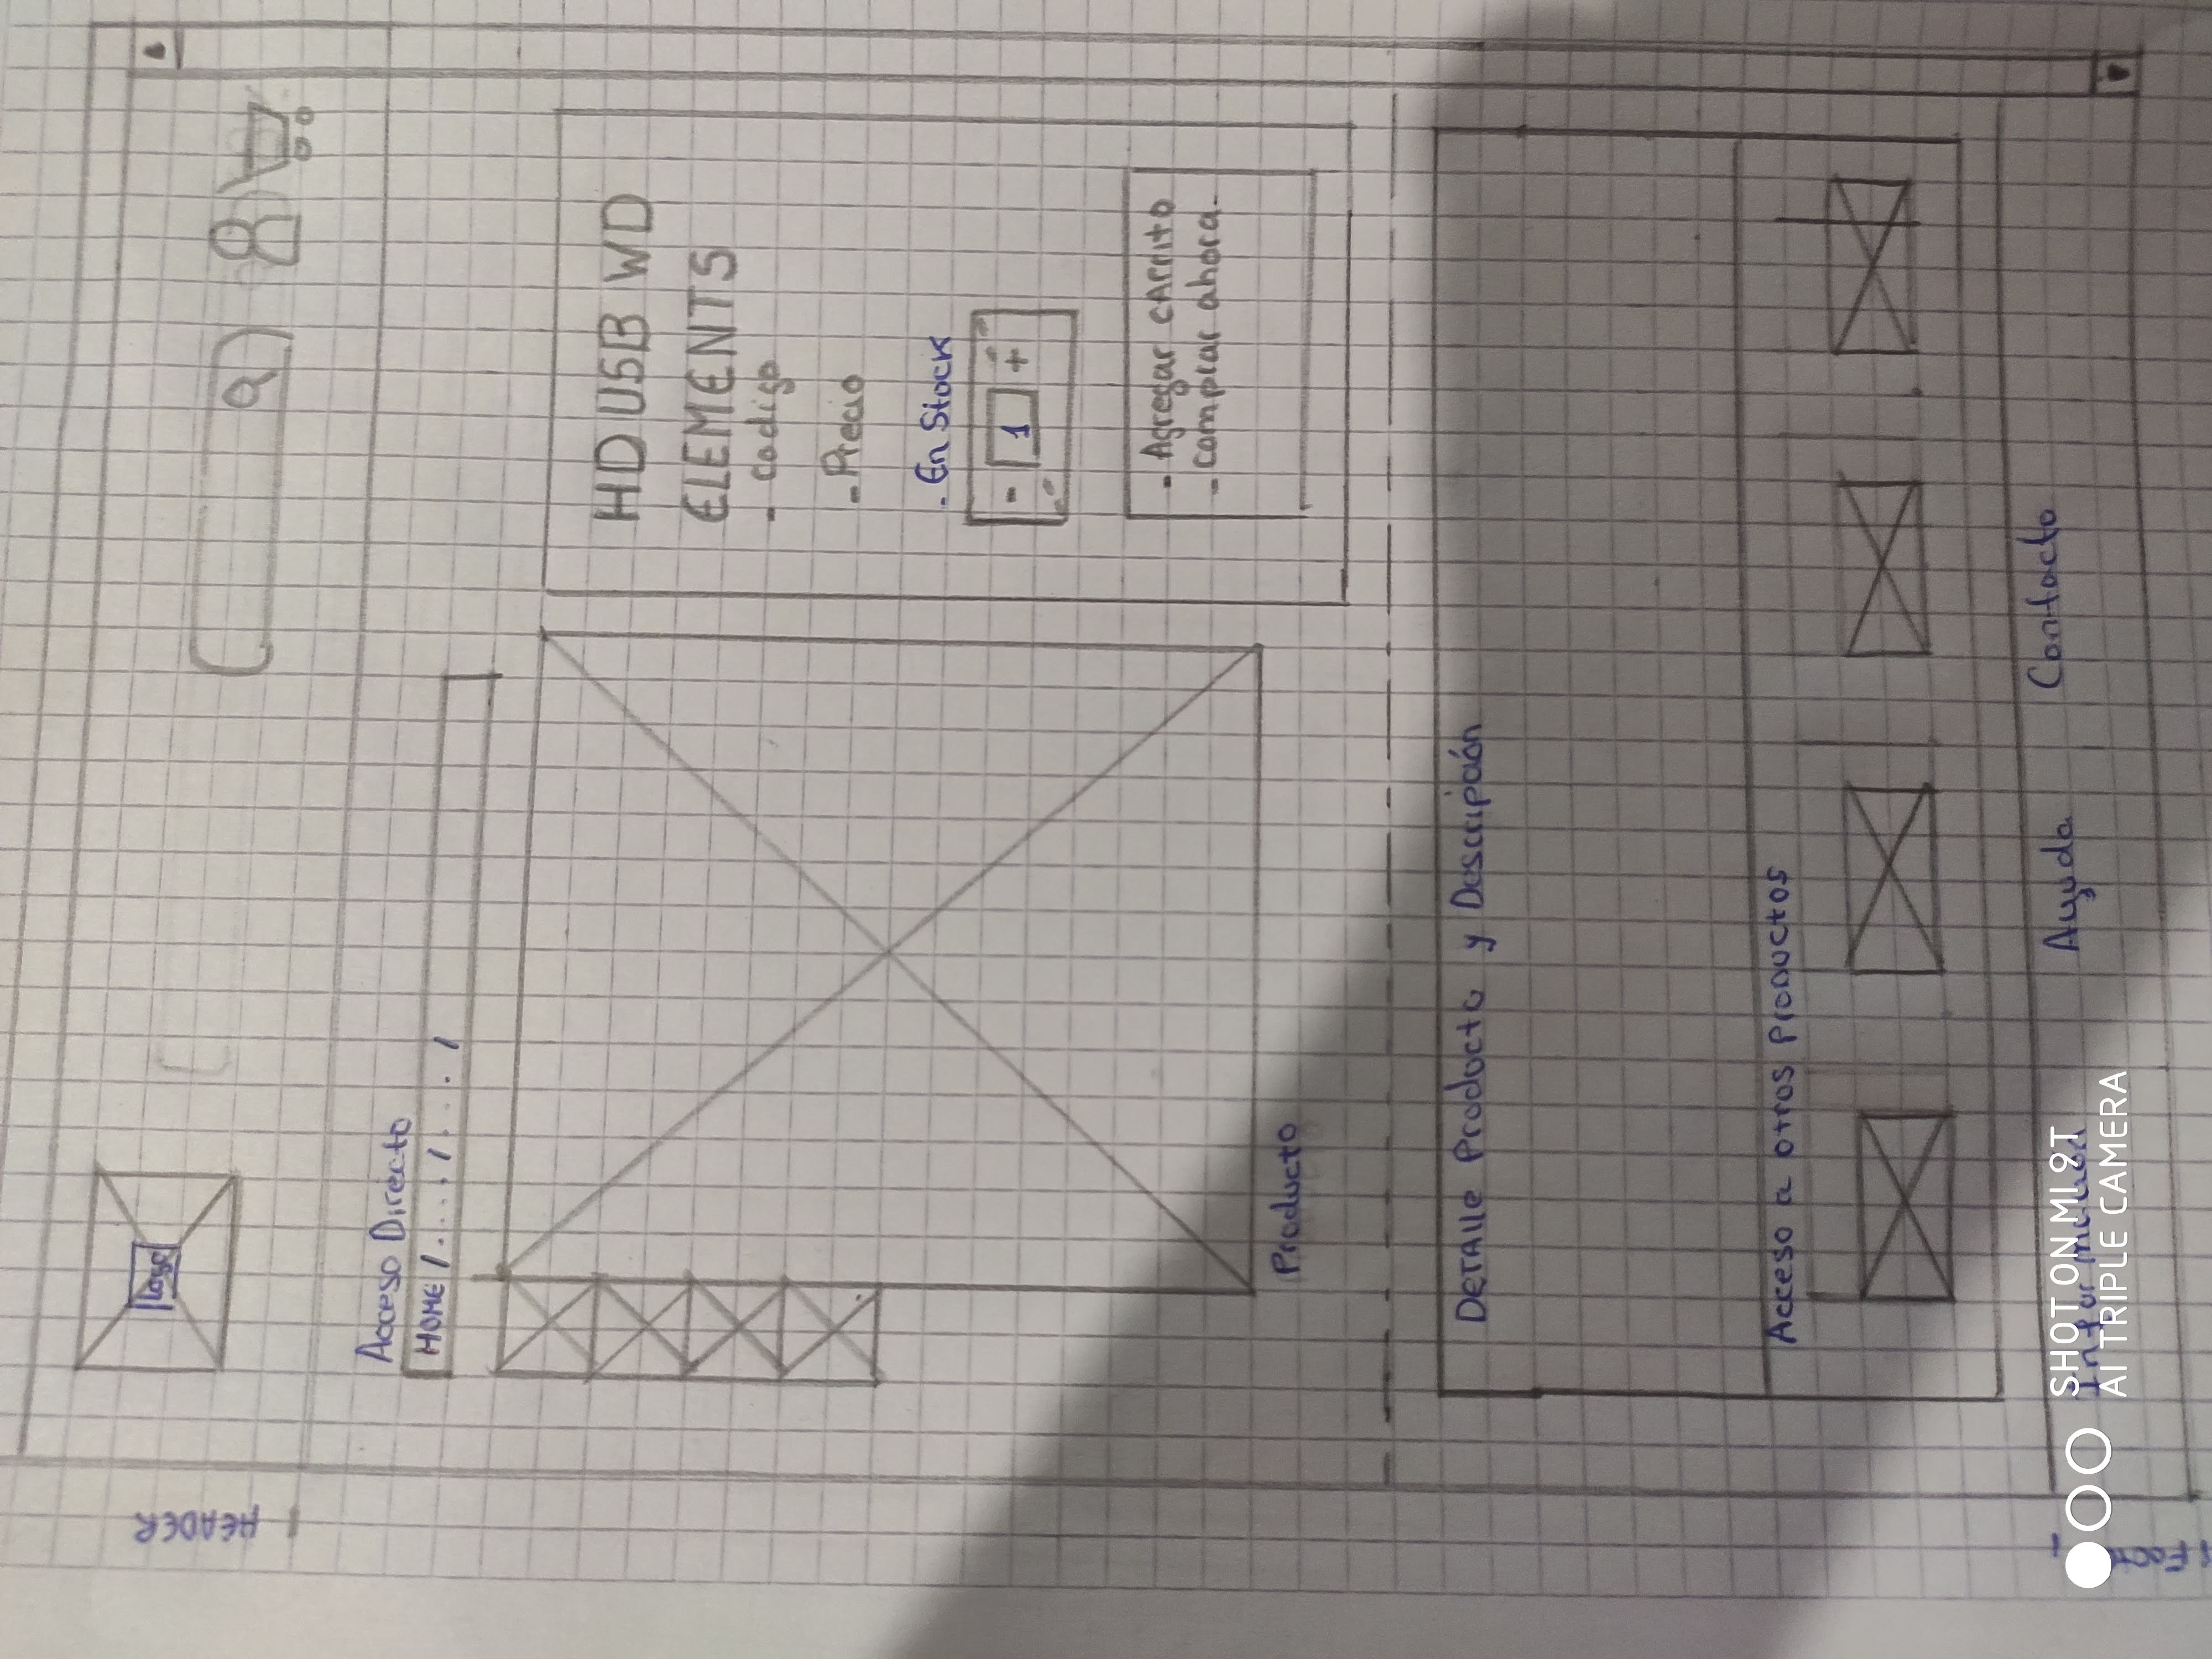 HEADER
Logo
Acceso Directo
HOME / .... / .... /
HD USB WD
ELEMENTS
- Codigo
- Precio
. En Stock
- 1 +
- Agregar cArrito
- comprar ahora.
Producto
DETAlle Producto y Descripción
Acceso a otros PRODUCTOS
Información
Ayuda
Contacto
SHOT ON MI 9T
AI TRIPLE CAMERA